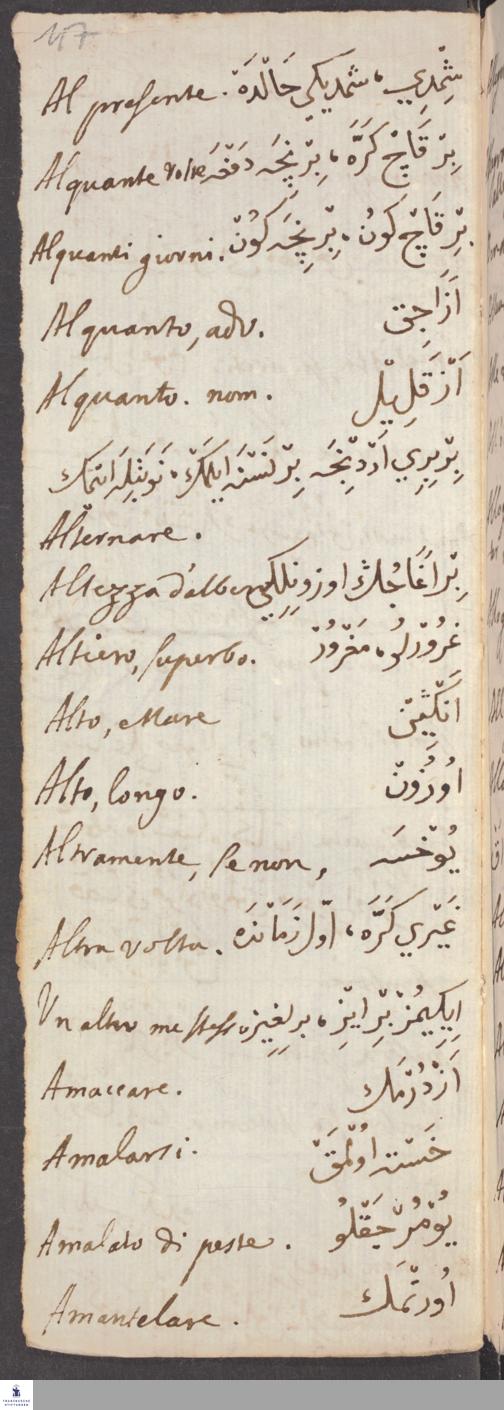 47
Al presente. شِمْدِي، شمديكي حَالْدَهْ
Alquante volte بِرْ قَاچْ كَرَّهْ، بِرْ نِچَه دَفْعَه
Alquanti giorni. بِرْ قَاچْ كَونْ، بِرْ نِچَه كُونْ
Alquanto, adv. اَزَاجِقْ
Alquanto. nom. اَزْ قَلِيلْ
بِرْبِرِي اَرْدِنْجَه بِرْ نَسْنَه ايلَمَكْ، نَوْبَتْلَه اتمك
Alternare.
Altezza d'alberi بِرْ اغَاجُكْ اوزونلِكِي
Altiero, superbo. غرُورْلُو، مَغْرُورْ
Alto, Mare اَنْكِينْ
Alto, longo. اُوزُونْ
Altramente, se non, يُوخْسَه
Altra volta. غَيْرِي كَرَّه، اوّل زَمَانْدَه
Un altro me stesso اِيكِيمُزْ بِرْ ايزْ، برلغيز
Amaccare. اَزْدُرْمَك
Amalarsi. خَسْتَه اوُلْمَقْ
Amalato di peste. يُومُرْجَقْلُو
Amantelare. اُورتْمَك